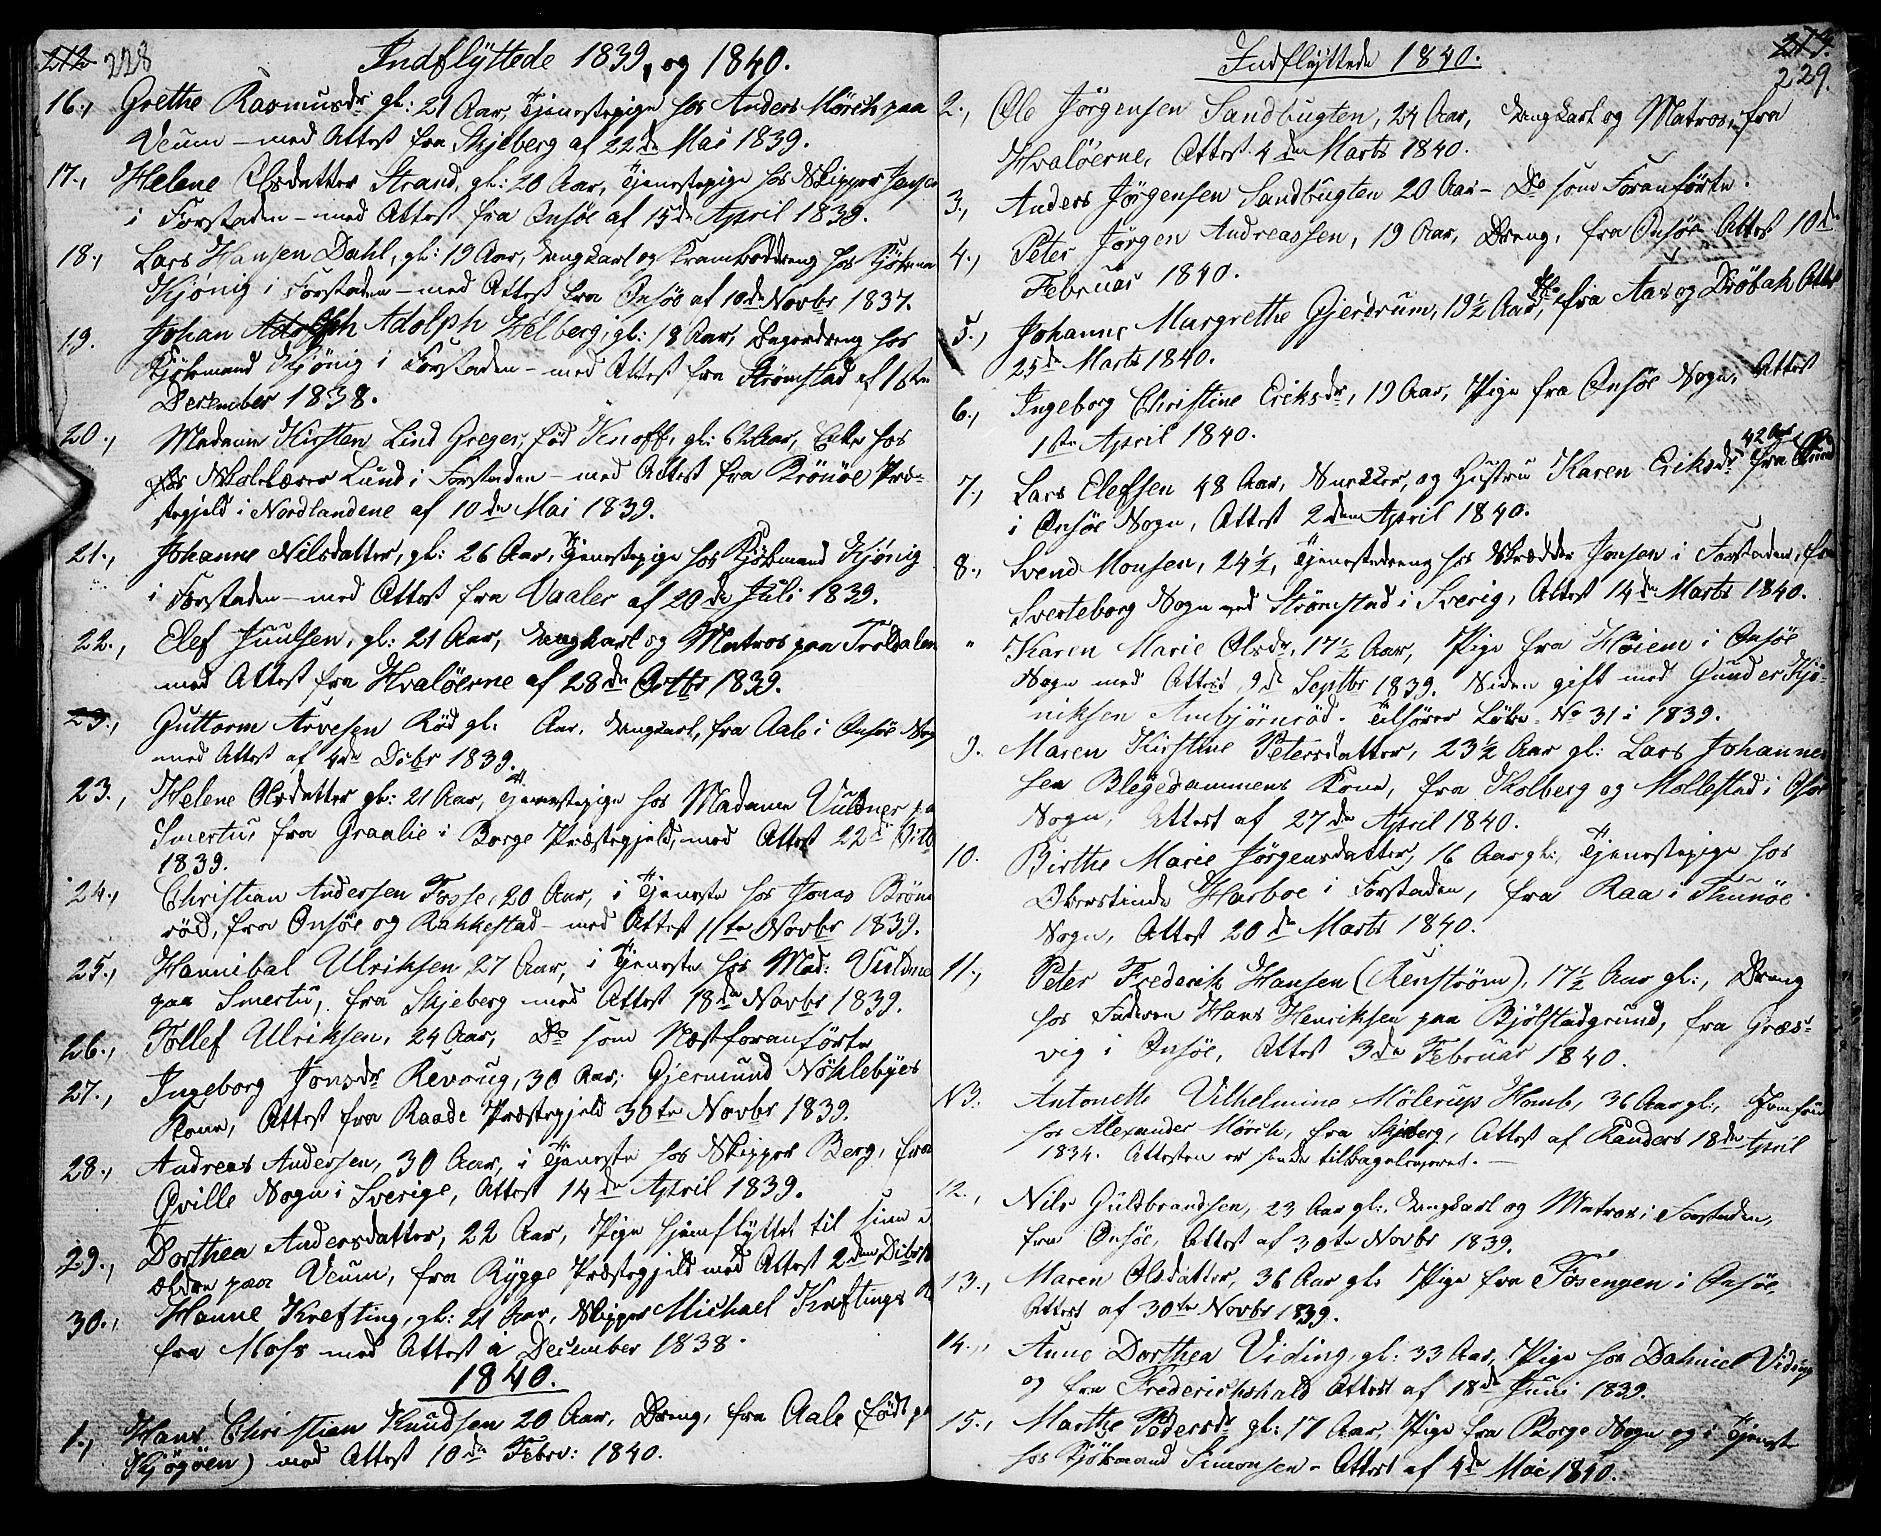 212 228 Indflyttede 1839, og 1840.
16., Grethe Rasmusdr gl: 21 Aar, Tjenestepige hos Anders Mörch paa
Veum – med Attest fra Skjeberg af 22de Mai 1839.
17., Helene Olsdatter Strand, gl: 20 Aar, Tjenestepige hos Skipper Jensen
i Forstaden – med Attest fra Onsöe af 15de April 1839.
18., Lars Hansen Dahl, gl: 19 Aar, Ungkarl og Kramboddreng hos Kjöbmand
Kjönig i Forstaden – med Attest fra Onsöe af 10de Novbr 1837.
19. Johan Adolph Adolph Helberg, gl: 18 Aar, Bagerdreng hos
Kjöbmand Kjönig i Forstaden – med Attest fra Strömstad af 1ste
December 1838.
20., Madame Kirsten Lind Greger, föd Knoff, gl: 62 Aar, Enke hos
hos Skolelærer Lund i Forstaden – med Attest fra Brönöe Præ-
stegjeld i Nordlandene af 10de Mai 1839.
21., Johanne Nilsdatter, gl: 26 Aar, Tjenestepige hos Kjöbmand Kjönig
i Forstaden – med Attest fra Vaaler af 20de Juli 1839.
22., Elef Juulsen, gl: 21 Aar, Ungkarl og Matros paa Troldalen
med Attest fra Hvalöerne af 28de Octbr 1839.
23., Guttorm Arvesen Röd gl. Aar, Ungkarl, fra Aale i Onsöe Sogn
med Attest af 4de Decbr 1839.
23., Helene Olsdatter gl: 21 Aar, Tjenestepige hos Madame Vuldner paa
Smertu, fra Graalie i Borge Præstegjeld, med Attest 22de Octb
1839.
24., Christian Andersen Fosse, 20 Aar, i Tjeneste hos Jonas Bröne
röd, fra Onsöe og Rakkestad – med Attest 11te Novbr 1839.
25., Hannibal Ulriksen 27 Aar, i Tjeneste hos Mad: Vuldne
paa Smertu, fra Skjeberg med Attest 18de Novbr 1839.
26., Tollef Ulriksen, 24 Aar, Do som Næstforanförte
27., Ingeborg Jonsdr Revoug, 30 Aar, Gjermund Nöhlebyes
Kone, Attest fra Raade Præstegjeld 30te Novbr 1839.
28., Andreas Andersen, 30 Aar, i Tjeneste hos Skipper Berg, fra
Qville Sogn i Sverige, Attest 14de April 1839.
29., Dorthea Andersdatter, 22 Aar, Pige hjemflyttet til sine
ældre paa Veum, fra Rygge Præstegjeld med Attest 2den Decbr
30., Hanne Krefting, gl: 21 Aar, Skipper Michael Kreftings K
fra Moss med Attest i December 1838.
1840.
1., Hans Christian Knudsen 20 Aar, Dreng, fra Aale (födt p
Kjøgöen) med Attest 10de Febr: 1840.
Indflyttede 1840. 213. 229.
2., Ole Jörgensen Sandbugten, 24 Aar, Ungkarl og Matros, fra
Hvalöerne, Attest 4de Marts 1840.
3., Anders Jörgensen Sandbugten 20 Aar – Do som Foranförte.
4., Peter Jörgen Andreassen, 19 Aar, Dreng, fra Onsöe Attest 10de
Februar 1840.
5., Johanne Margrethe Gjerdrum, 19½ Aar, fra Aas og Dröbak Attest
25de Marts 1840.
6., Ingeborg Christine Eriksdr, 19 Aar, Pige fra Onsöe Sogn, Attest
1ste April 1840.
7., Lars Elefsen 48 Aar, Snedker, og Hustru Karen Eriksdr 42 Aar fra
i Onsöe Sogn, Attest 2den April 1840.
8., Svend Monsen, 24½, Tjenestedreng hos Skrædder Jensen i Forstaden, fra
Sverteborg Sogn ved Strömstad i Sverig, Attest 14de Marts 1840.
" Karen Marie Olsdr, 17½ Aar, Pige fra Höiem i Onsöe
Sogn med Attest 9de Septbr 1839. Siden gift med Gunder Hjö-
niksen Ambjörnröd. Tilförer Löbe No 31 i 1839.
9. Maren Kirstine Petersdatter, 23½ Aar gl: Lars Johanne
sen Blegedammens Kone, fra Kolberg og Mollestad i Onsöe
Sogn, Attest af 27de April 1840.
10. Birthe Marie Jörgensdatter, 16 Aar gl:, Tjenestepige hos
Oberstinde Harboe i Forstaden, fra Raa i Thunöe
Sogn, Attest 20de Marts 1840.
11., Peter Frederik Hansen (Renström), 17½ Aar gl:, Dreng
hos Faderen Hans Henriksen paa Bjölstadgrund, fra Græs-
vig i Onsöe, Attest 3de Februar 1840.
NB. Antonette Vilhelmine Mölerup Homb, 36 Aar gl:, Jomfru
hos Alexander Mörch, fra Skjeberg, Attest af Randers 18de April
1834. Attesten er hende tilbageleveret. –
12., Nils Guldbrandsen, 23 Aar gl:, Ungkarl og Matros i Forstaden,
fra Onsöe, Attest af 30te Novbr 1839.
13., Maren Olsdatter, 36 Aar gl: Pige fra Tosengen i Onsöe,
Attest af 30te Novbr 1839.
14., Anne Dorthea Viding, gl: 33 Aar, Pige hos Dahniel Viding
og fra Frederichshald Attest af 18de Juni 1839.
15., Marthe Pedersdr gl: 17 Aar, Pige fra Borge Sogn og i Tjeneste
hos Kjöbmand Simonsen – Attest af 4de Mai 1840.